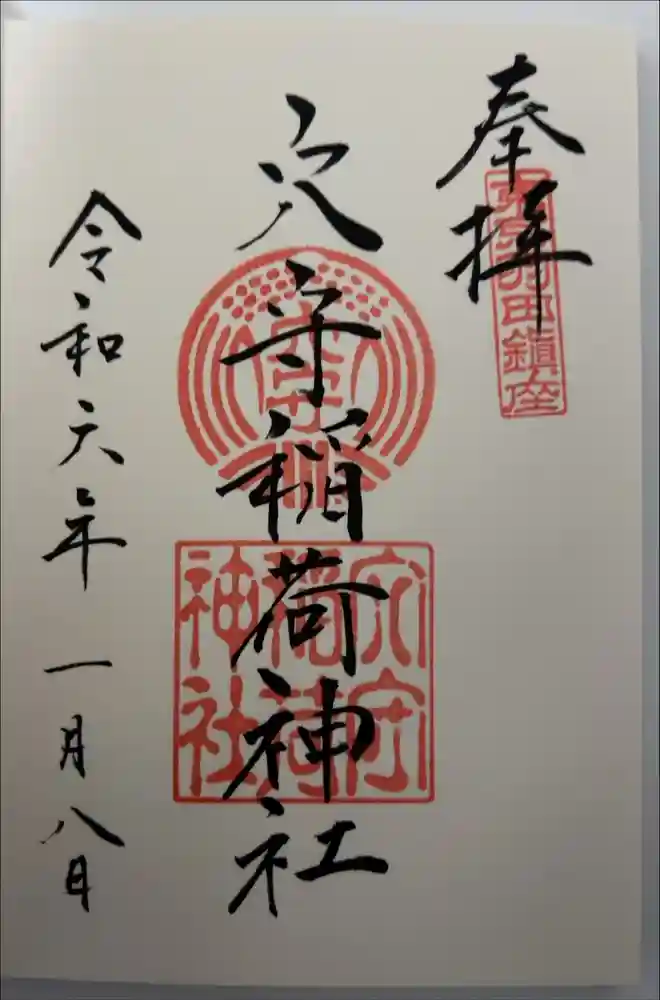 奉拝
東京羽田鎮座
穴守稲荷神社
守
穴守
稲荷
神社
令和六年 一月八日